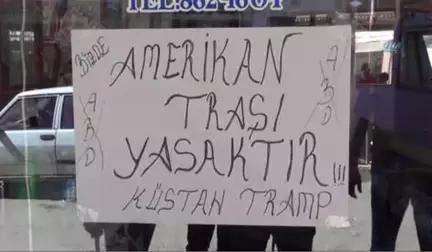 TEL:862 48 04
BİZDE
AMERİKAN
TRAŞI
YASAKTIR!!!
KÜSTAH TRAMP
ABD
ABD